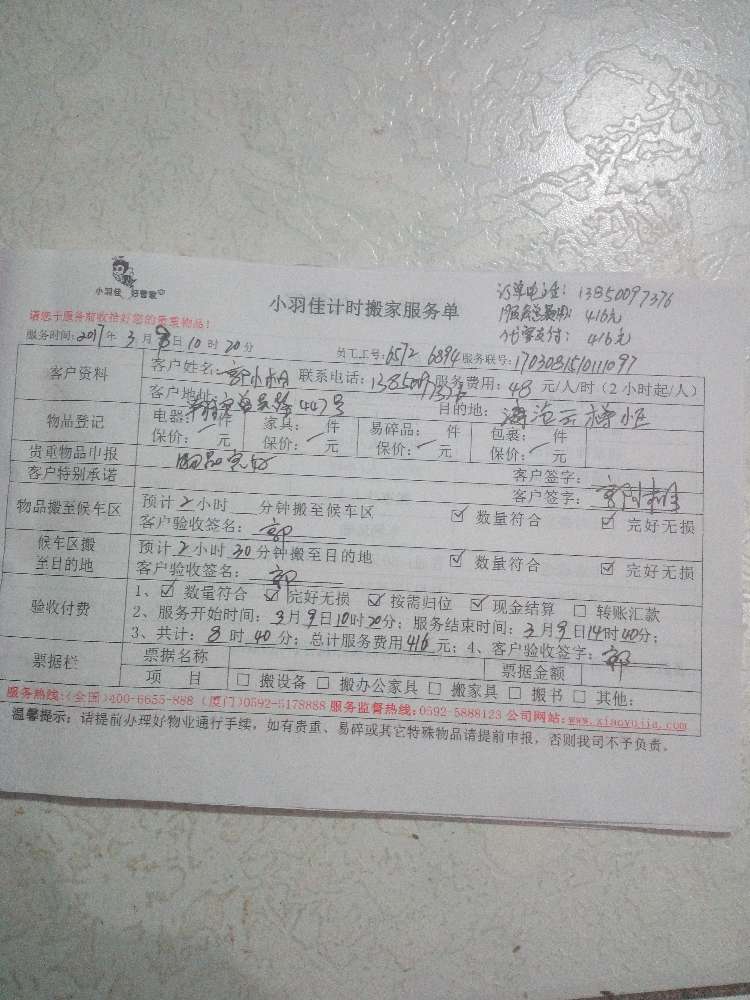 小羽佳 好管家
小羽佳计时搬家服务单
订单电话：13850097376
服务总费用：416元
代客支付：416元
请您于服务前收拾好您的贵重物品！
服务时间：2017年3月9日10时20分 员工工号：6572 6894 服务联号：1703081510111097
客户资料 客户姓名： 联系电话：13850097376 服务费用：48元/人/时（2小时起/人）
客户地址：447号 目的地：
物品登记 电器： 件 家具： 件 易碎品： 件 包裹： 件
保价： 元 保价： 元 保价： 元 保价： 元
贵重物品申报 物品完好 客户签字：
客户特别承诺 客户签字：
物品搬至候车区 预计2小时 分钟搬至候车区 ☑ 数量符合 ☑ 完好无损
客户验收签名：郭
候车区搬至目的地 预计2小时30分钟搬至目的地 ☑ 数量符合 ☑ 完好无损
客户验收签名：郭
验收付费 1、☑ 数量符合 ☑ 完好无损 ☑ 按需归位 ☑ 现金结算 □ 转账汇款
2、服务开始时间：3月9日10时20分；服务结束时间：3月9日14时40分；
3、共计：8时40分；总计服务费用416元；4、客户验收签字：郭
票据栏 票据名称 票据金额
项 目 □ 搬设备 □ 搬办公家具 □ 搬家具 □ 搬书 □ 其他：
服务热线：（全国）400-6655-888（厦门）0592-5178888 服务监督热线：0592-5888123 公司网站：www.xiaoyujia.com
温馨提示：请提前办理好物业通行手续，如有贵重、易碎或其它特殊物品请提前申报，否则我司不予负责。